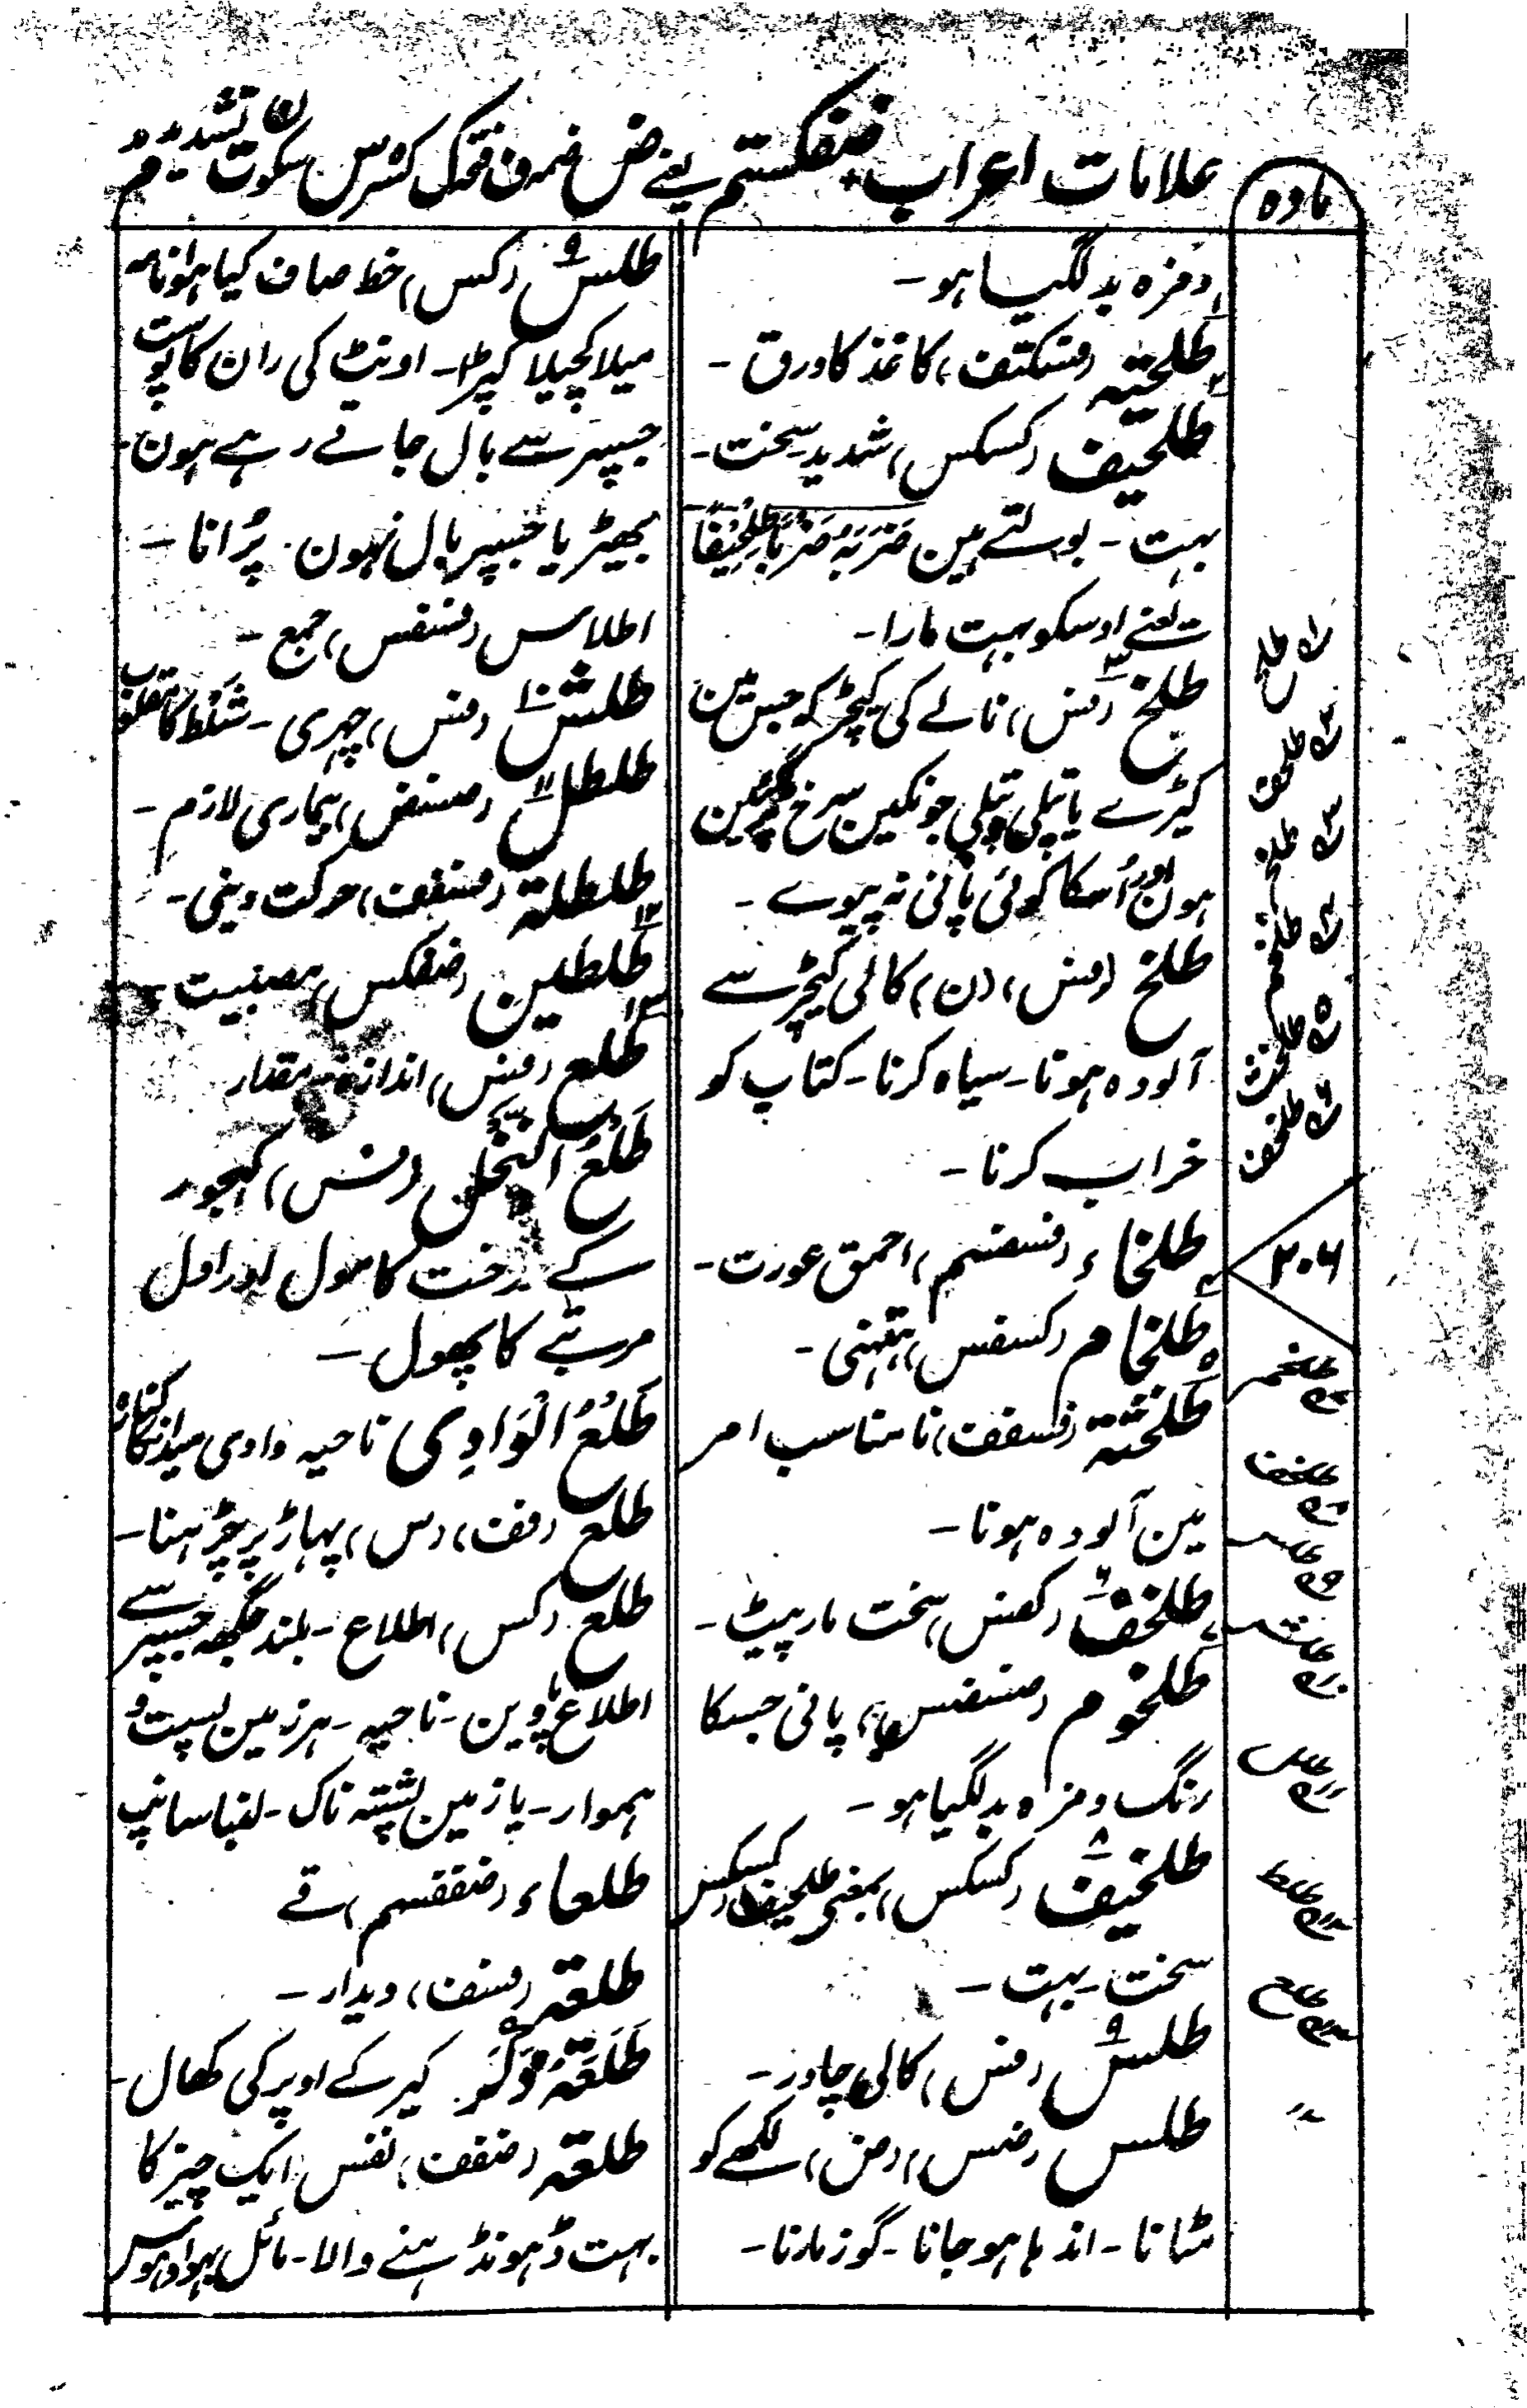 علامات اعراب ضفکستم یعنے ض ضمہ ف فتحہ ک کسرہ س سکون ت تشدید م مد
مادہ
ومزہ بدلگیا ہو۔
طلحتیہ (فسکتف) کاغذ کا ورق۔
طلحیف (کسکس) شدید سخت۔
بہت۔ بولتے ہین ضَرَبَہُ ضَرْبًا طِلْحِیْفًا
یعنے اوسکو بہت مارا۔
طلخ (فس) نالے کی کیچڑ کہ جس مین
کیڑے یا پتلی پتلی جونکین سرخ رنگین
ہون اور اُسکا کوئی پانی نہ پیوے۔
طلخ (فس) (ن) کالی کیچڑ سے
آلودہ ہونا۔ سیاہ کرنا۔ کتاب کو
خراب کرنا۔
طلخاء (فسفسم) احمق عورت۔
طلخام (کسفس) ہتہنی۔
طلخثتہ (فسففت) نا مناسب امر
مین آلودہ ہونا۔
طلخف (کفس) سخت مارپیٹ۔
طلخوم (ضسضس) پانی جسکا
رنگ ومزہ بدلگیا ہو۔
طلخیف (کسکس) بمعنی طلحیف (کسکس
سخت۔ بہت۔
طلس (فس) کالی چادر۔
طلس (فس) (ض) لکھے کو
مٹانا۔ اندہا ہوجانا۔ گوز مارنا۔
طلس (کس) خط صاف کیا ہوا نامہ
میلا کچیلا کپڑا۔ اونٹ کی ران کا پوست
جسپر سے بال جاتے رہے ہون۔
بھیڑیا جسپر بال نہون۔ پُرانا۔
اطلاس (فسفس) جمع۔
طلش (فس) چہری۔ شَلْط کا مقلوب
طلطل (ضسفض) بیماری لازم۔
طلطلتہ (فسففت) حرکت دینی۔
طلطلین (ضفکس) مصیبت۔
طلع (فس) اندازہ۔ مقدار
طَلْعُ النَّخْل (فس) کہجور
کے درخت کا مول اور اول
مرتبے کا پھول۔
طَلْعُ الْوَادِی ناحیہ وادی میدانکا کنارہ
طلع (فف) (س) پہاڑ پر چڑہنا۔
طلع (کس) اطلاع۔ بلند جگھہ جسپر سے
اطلاع پاوین۔ ناحیہ۔ ہر زمین پست و
ہموار۔ یا زمین پشتہ ناک۔ لفبا سانپ
طلعاء (ضففسم) قے
طلعتہ (فسفت) دیدار۔
طَلَعَۃُ ذَکَر کیر کے اوپر کی کھال۔
طلعتہ (ضففت) نفس ایک چیز کا
بہت ڈہونڈہنے والا۔ مائل بہوا وہوس
۱ طلح
۲ طلحف
۳ طلخ
۴ طلخم
۵ طلخث
۶ طلخف
۲۰۶
طلخم
طلخف
طلس
طلش
طلع